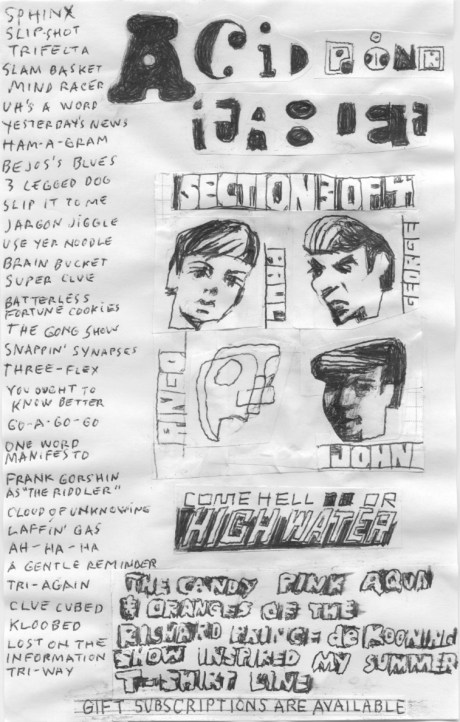 SPHINX
SLIP-SHOT
TRIFECTA
SLAM BASKET
MIND RACER
UH'S A WORD
YESTERDAY'S NEWS
HAM-A-GRAM
BEJOS'S BLUES
3 LEGGED DOG
SLIP IT TO ME
JARGON JIGGLE
USE YER NOODLE
BRAIN BUCKET
SUPER CLUE
BATTERLESS
FORTUNE COOKIES
THE GONG SHOW
SNAPPIN' SYNAPSES
THREE-FLEX
YOU OUGHT TO
KNOW BETTER
GO-A-GO-GO
ONE WORD
MANIFESTO
FRANK GORSHIN
AS "THE RIDDLER"
CLOUD OF UNKNOWING
LAFFIN' GAS
AH-HA-HA
A GENTLE REMINDER
TRI-AGAIN
CLUE CUBED
KLOOBED
LOST ON THE
INFORMATION
TRI-WAY
ACID PINK
SECTION 3 OF 4
PAUL
GEORGE
RINGO
JOHN
COME HELL OR
HIGH WATER
THE CANDY PINK AQUA
& ORANGES OF THE
RICHARD PRINCE de KOONING
SHOW INSPIRED MY SUMMER
T-SHIRT LINE
GIFT SUBSCRIPTIONS ARE AVAILABLE